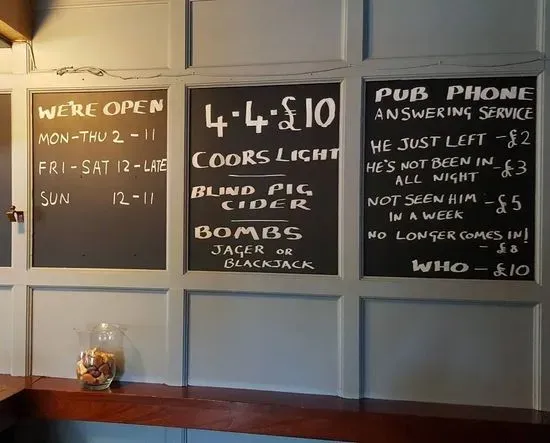 WE'RE OPEN
MON-THU 2 - 11
FRI-SAT 12-LATE
SUN 12-11
4·4·£10
COORS LIGHT
BLIND PIG
CIDER
BOMBS
JAGER OR
BLACKJACK
PUB PHONE
ANSWERING SERVICE
HE JUST LEFT -£2
HE'S NOT BEEN IN
ALL NIGHT -£3
NOT SEEN HIM
IN A WEEK -£5
NO LONGER COMES IN!
- £8
WHO - £10